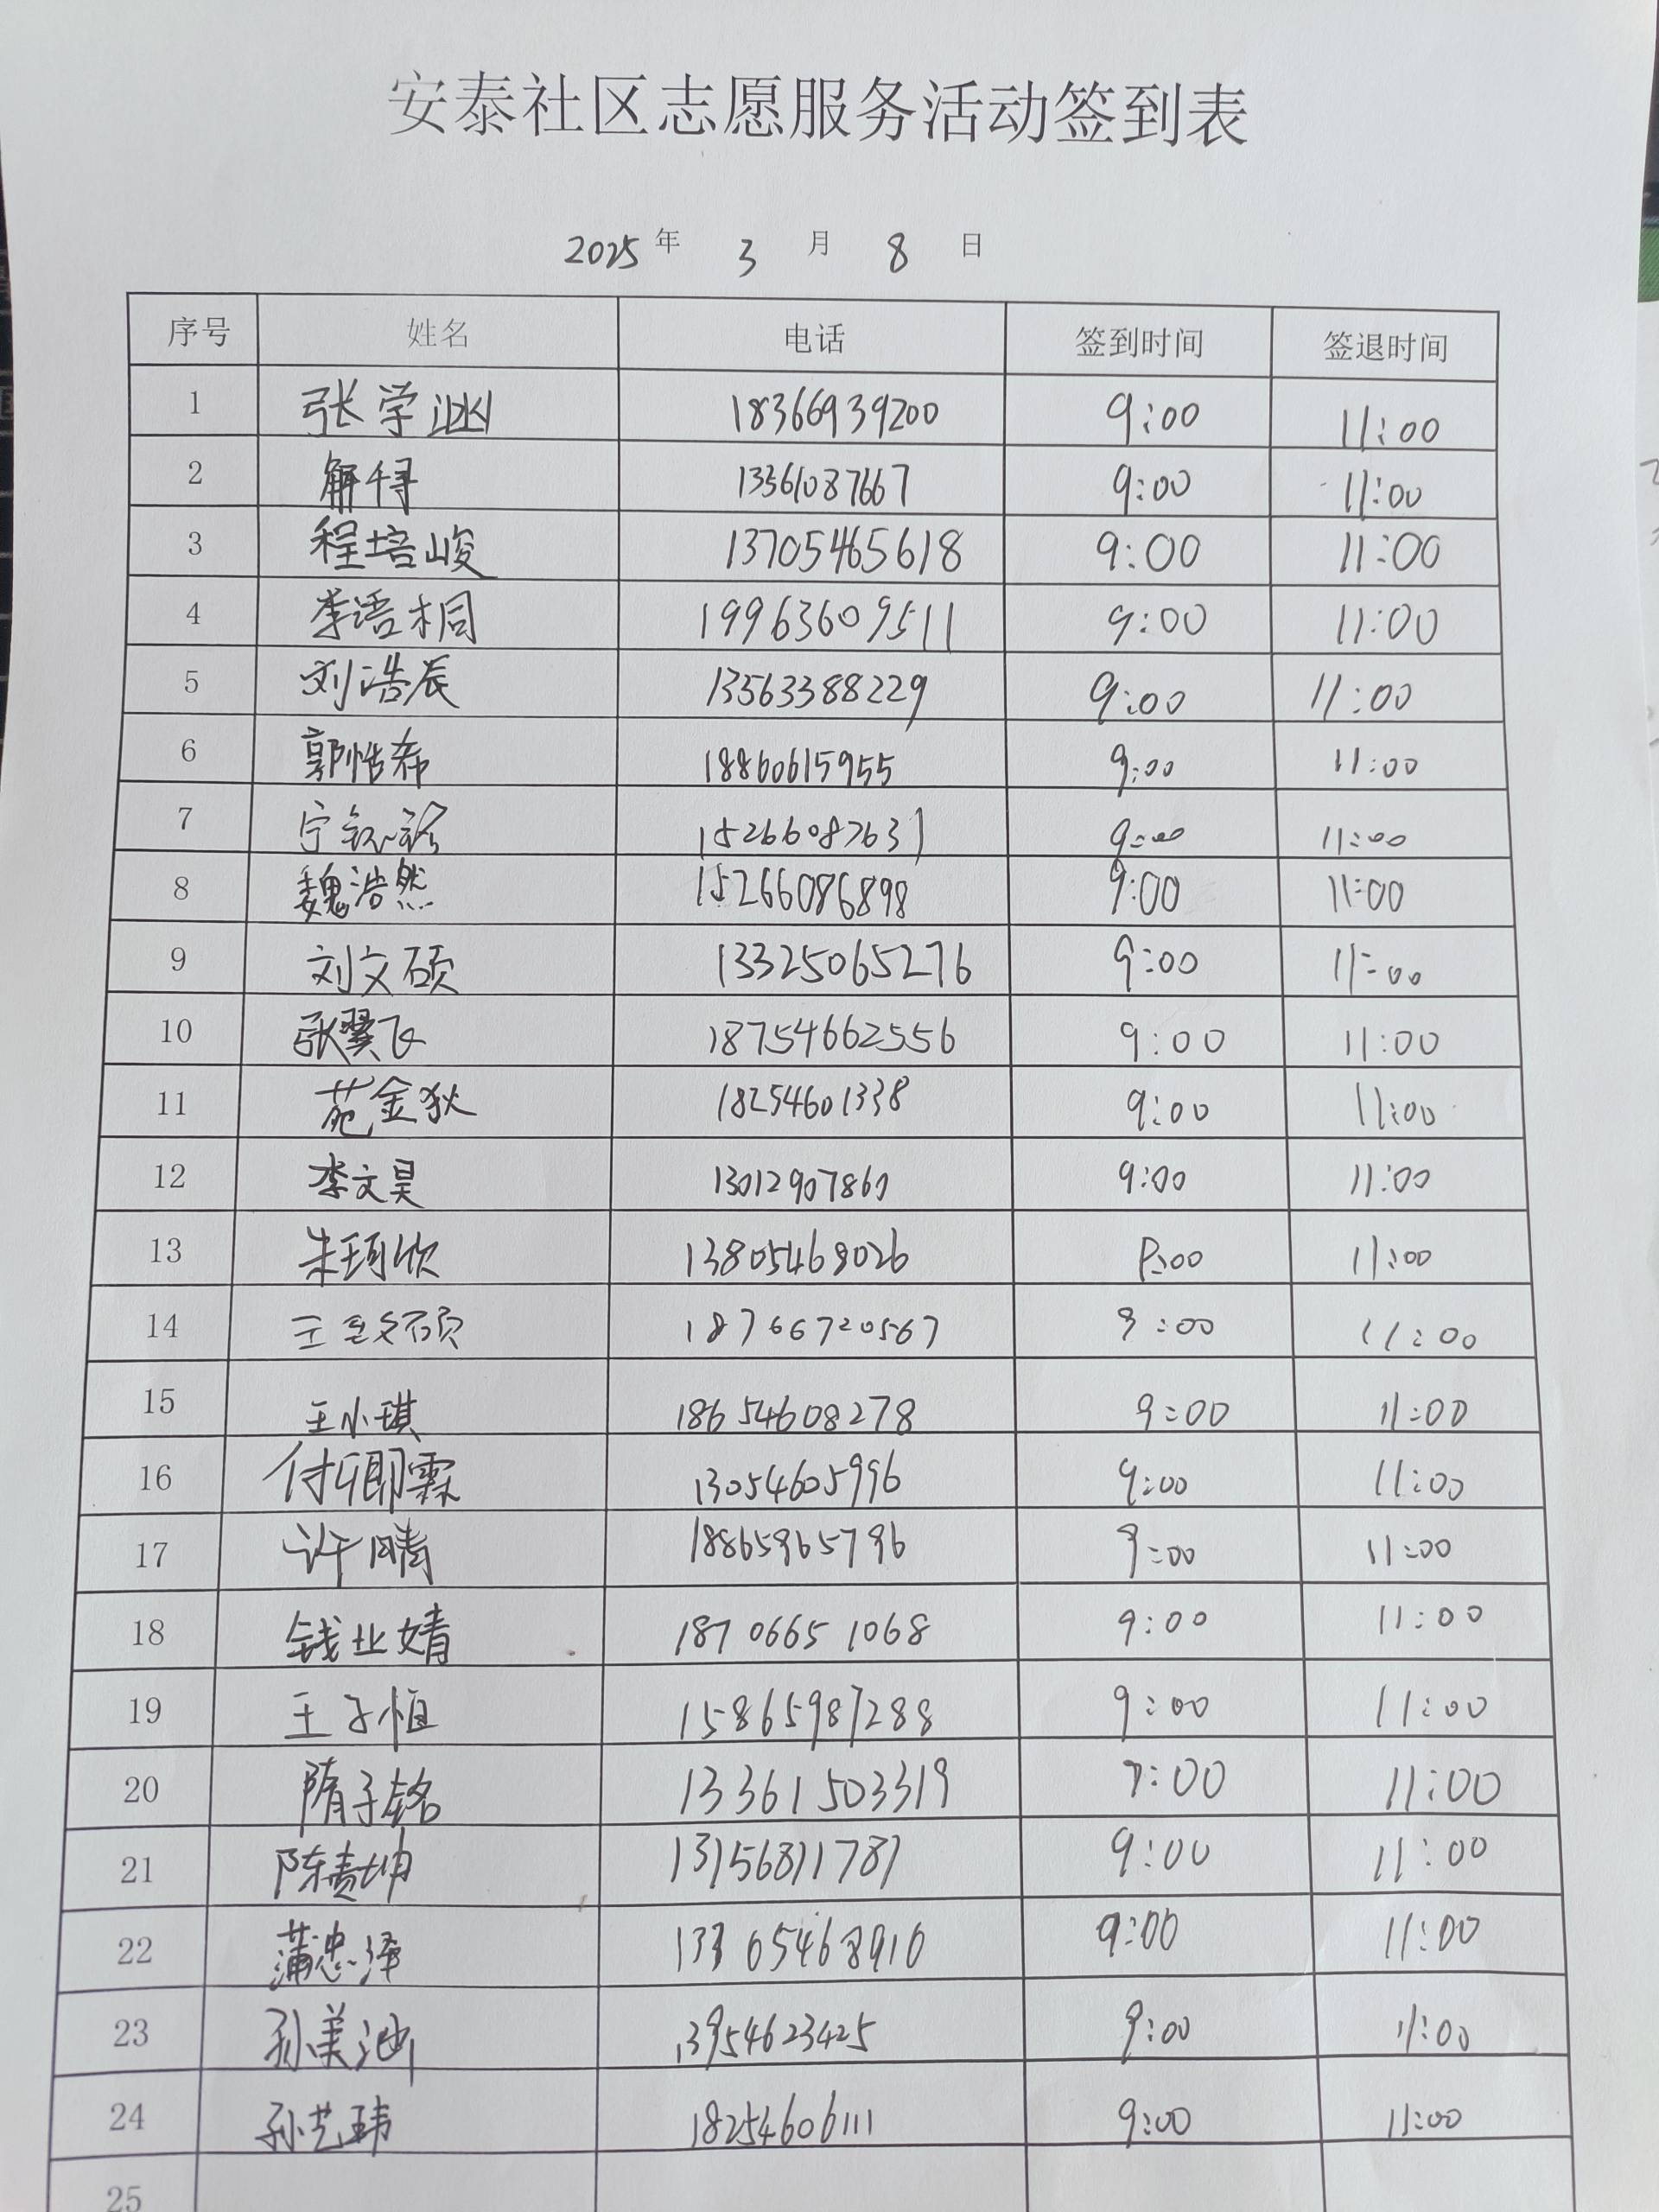 安泰社区志愿服务活动签到表
2025年 3 月 8 日
序号 姓名 电话 签到时间 签退时间
1 张学 18366939200 9:00 11:00
2 解 13361087667 9:00 11:00
3 程培峻 13705465618 9:00 11:00
4 李语桐 19963609511 9:00 11:00
5 刘浩辰 13563388229 9:00 11:00
6 郭恺希 18860615955 9:00 11:00
7 宁 15266087631 9:00 11:00
8 魏浩然 15266086898 9:00 11:00
9 刘文硕 13325065276 9:00 11:00
10 张翼飞 18754662556 9:00 11:00
11 苑金狄 18254601338 9:00 11:00
12 李文昊 13012907860 9:00 11:00
13 朱珂欣 13805468026 9:00 11:00
14 王 硕 18766720567 9:00 11:00
15 王小琪 18654608278 9:00 11:00
16 付卿霖 13054605996 9:00 11:00
17 许晴 18865965796 9:00 11:00
18 钱业婧 18706651068 9:00 11:00
19 王子恒 15865987288 9:00 11:00
20 隋子铭 13361503319 9:00 11:00
21 陈 坤 13156811787 9:00 11:00
22 蒲忠泽 13365468910 9:00 11:00
23 孙美 13954623425 9:00 11:00
24 孙艺玮 18254606111 9:00 11:00
25